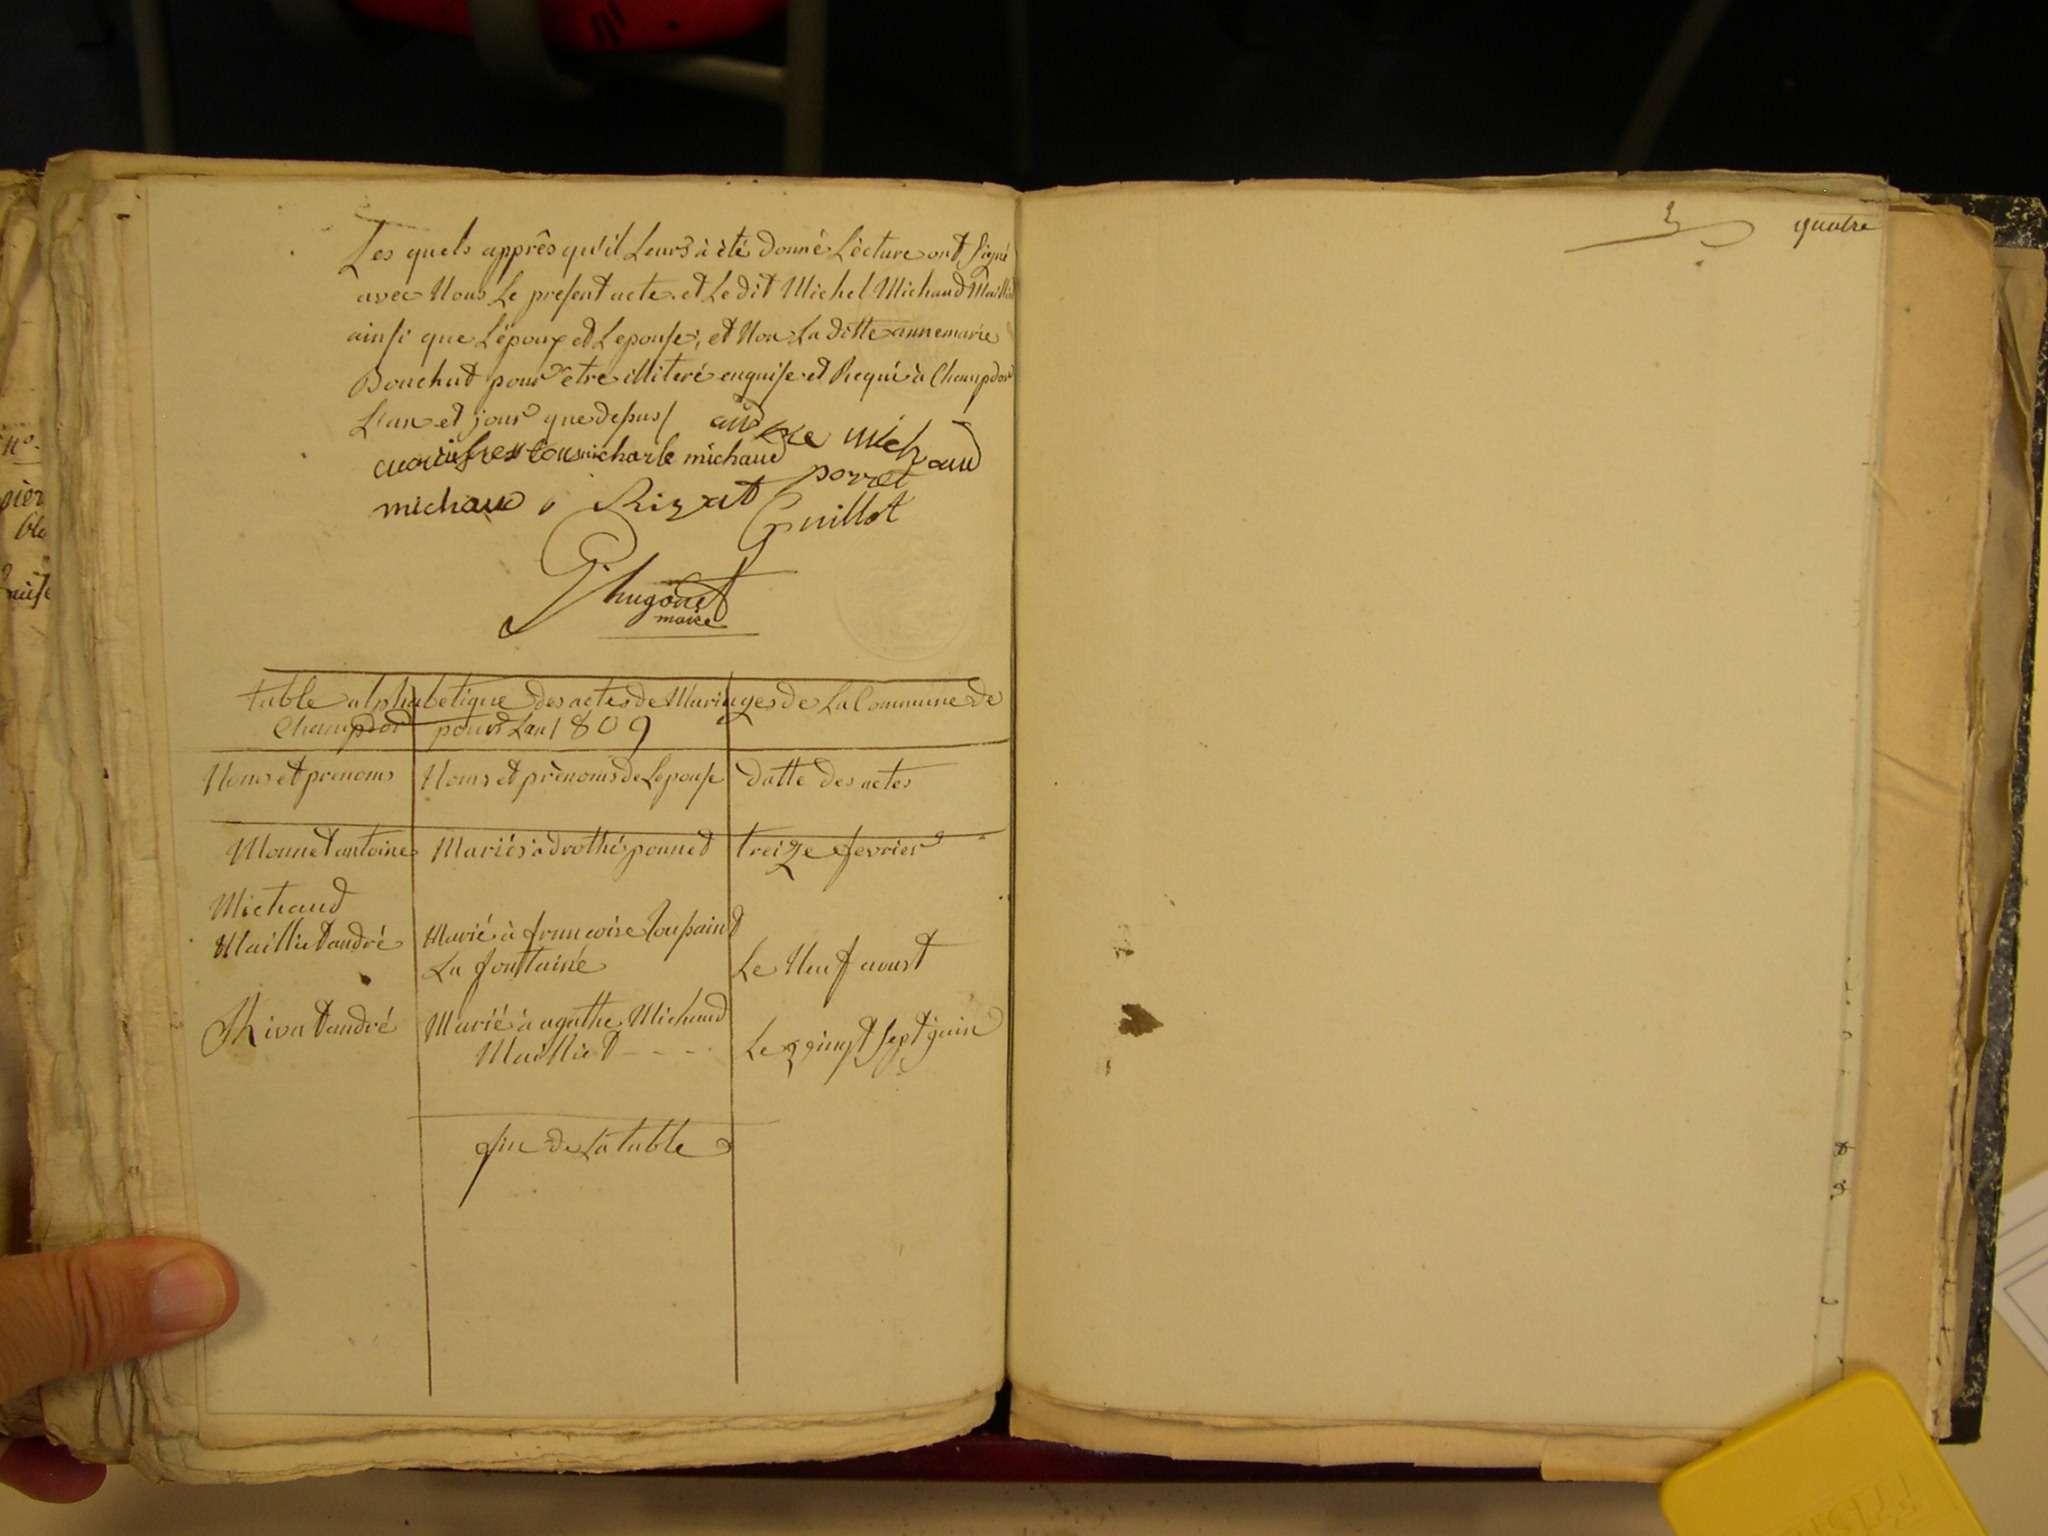 Les quels apprês qu'il Leurs à été donné Lécture ont signé
avec Nous Le present acte. et Le dit Michel Michaud Mailliet
ainsi que L'époux et Lepouse, et Non La ditte annemarie
Bouchut pour être illiteré enquise et Requié à Champdor
L'an et jour que depus /
michaud
andre michaud
michaud Rizat porret
Guillot
hugonet
maire
table alphabetique des actes de Mariages de La Commune de
Champdor pour Lan 1809
Noms et prenoms Noms et prènoms de Lepouse datte des actes
Monnet antoine Mariés à drothé ponned treize fevrier
Michaud
Mailliet andré Marié à francoise
La fontaine Le Neuf aoust
Rivat andré Marié à agathe Michaud
Mailliet - - - Le vingt sept juin
fin de La table
quatre